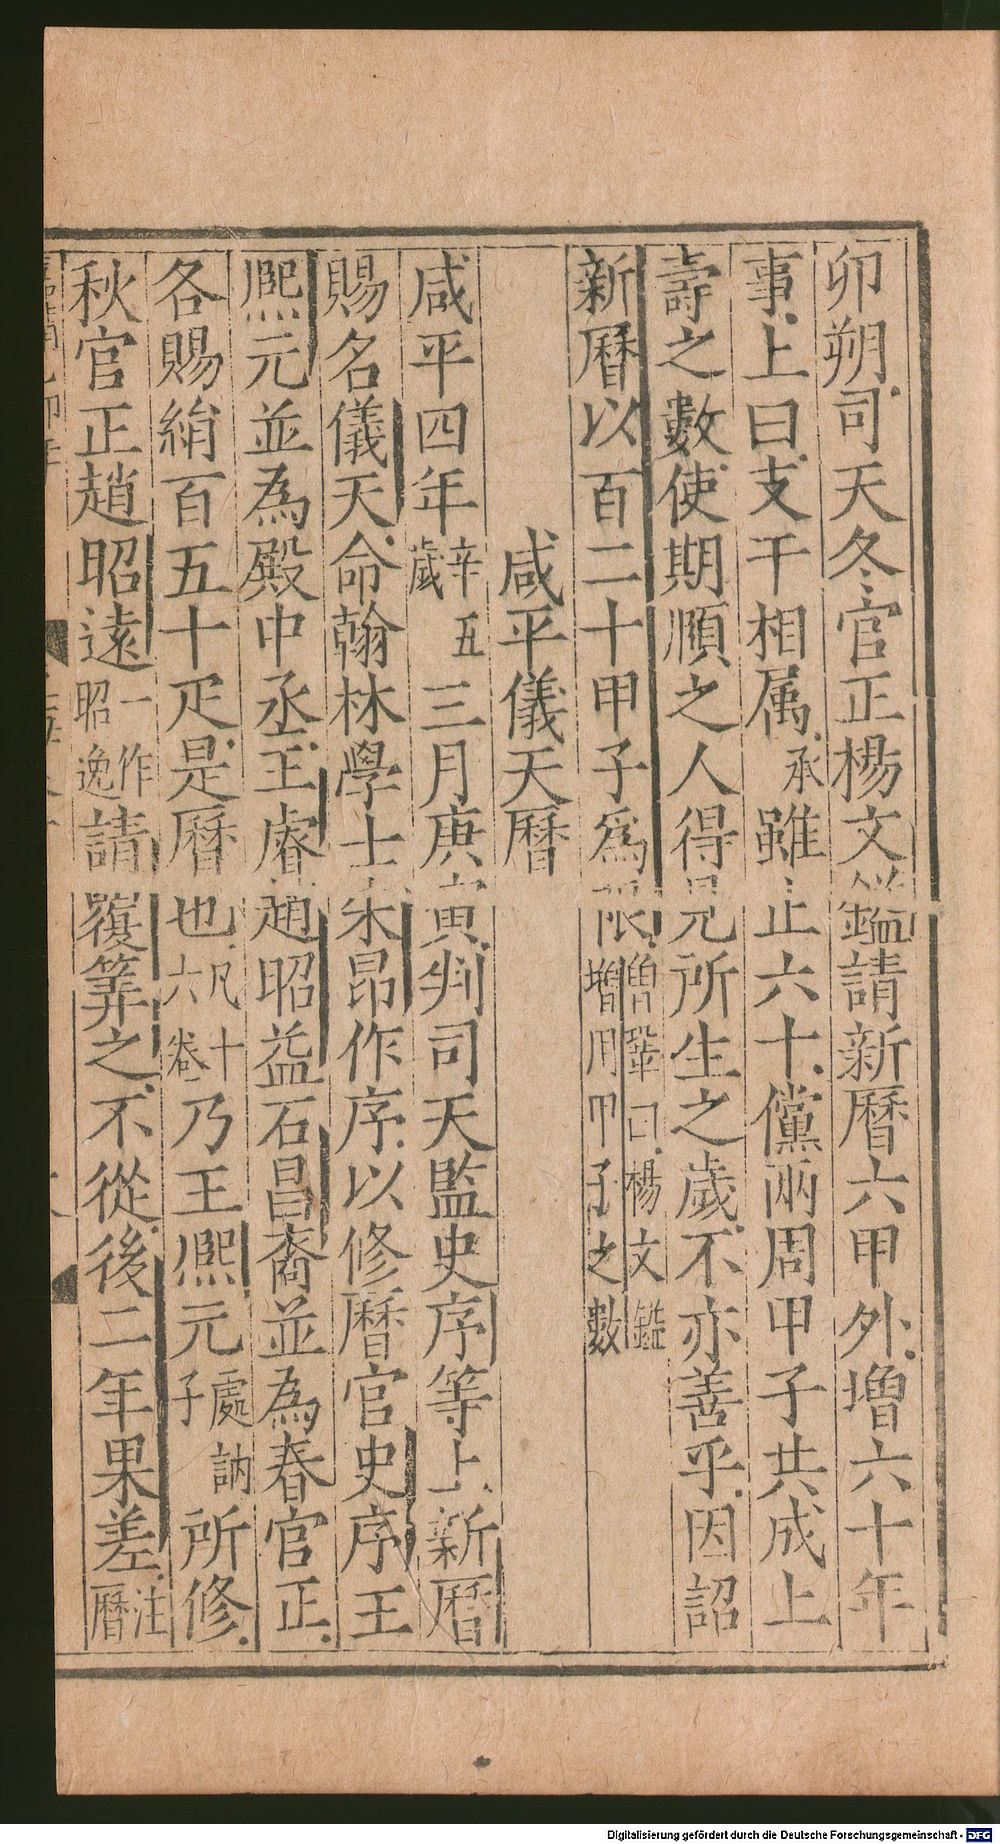 卯朔司天冬官正楊文鎰請新曆六甲外增六十年
事上曰支干相属承雖止六十儻兩周甲子共成上
壽之數使期順之人得見所生之歲不亦善乎因詔
新曆以百二十甲子爲限曾鞏曰楊文鎰增用甲子之數
咸平儀天曆
咸平四年辛五歲三月庚寅判司天監史序等上新曆
賜名儀天命翰林學士朱昂作序以修曆官史序王
熙元並為殿中丞王睿趙昭益石昌裔並為春官正
各賜絹百五十疋是曆也凡十六卷乃王熙元處訥子所修
秋官正趙昭遠一作昭逸請覆筭之不從後二年果差注曆
Digitalisierung gefördert durch die Deutsche Forschungsgemeinschaft - DFG